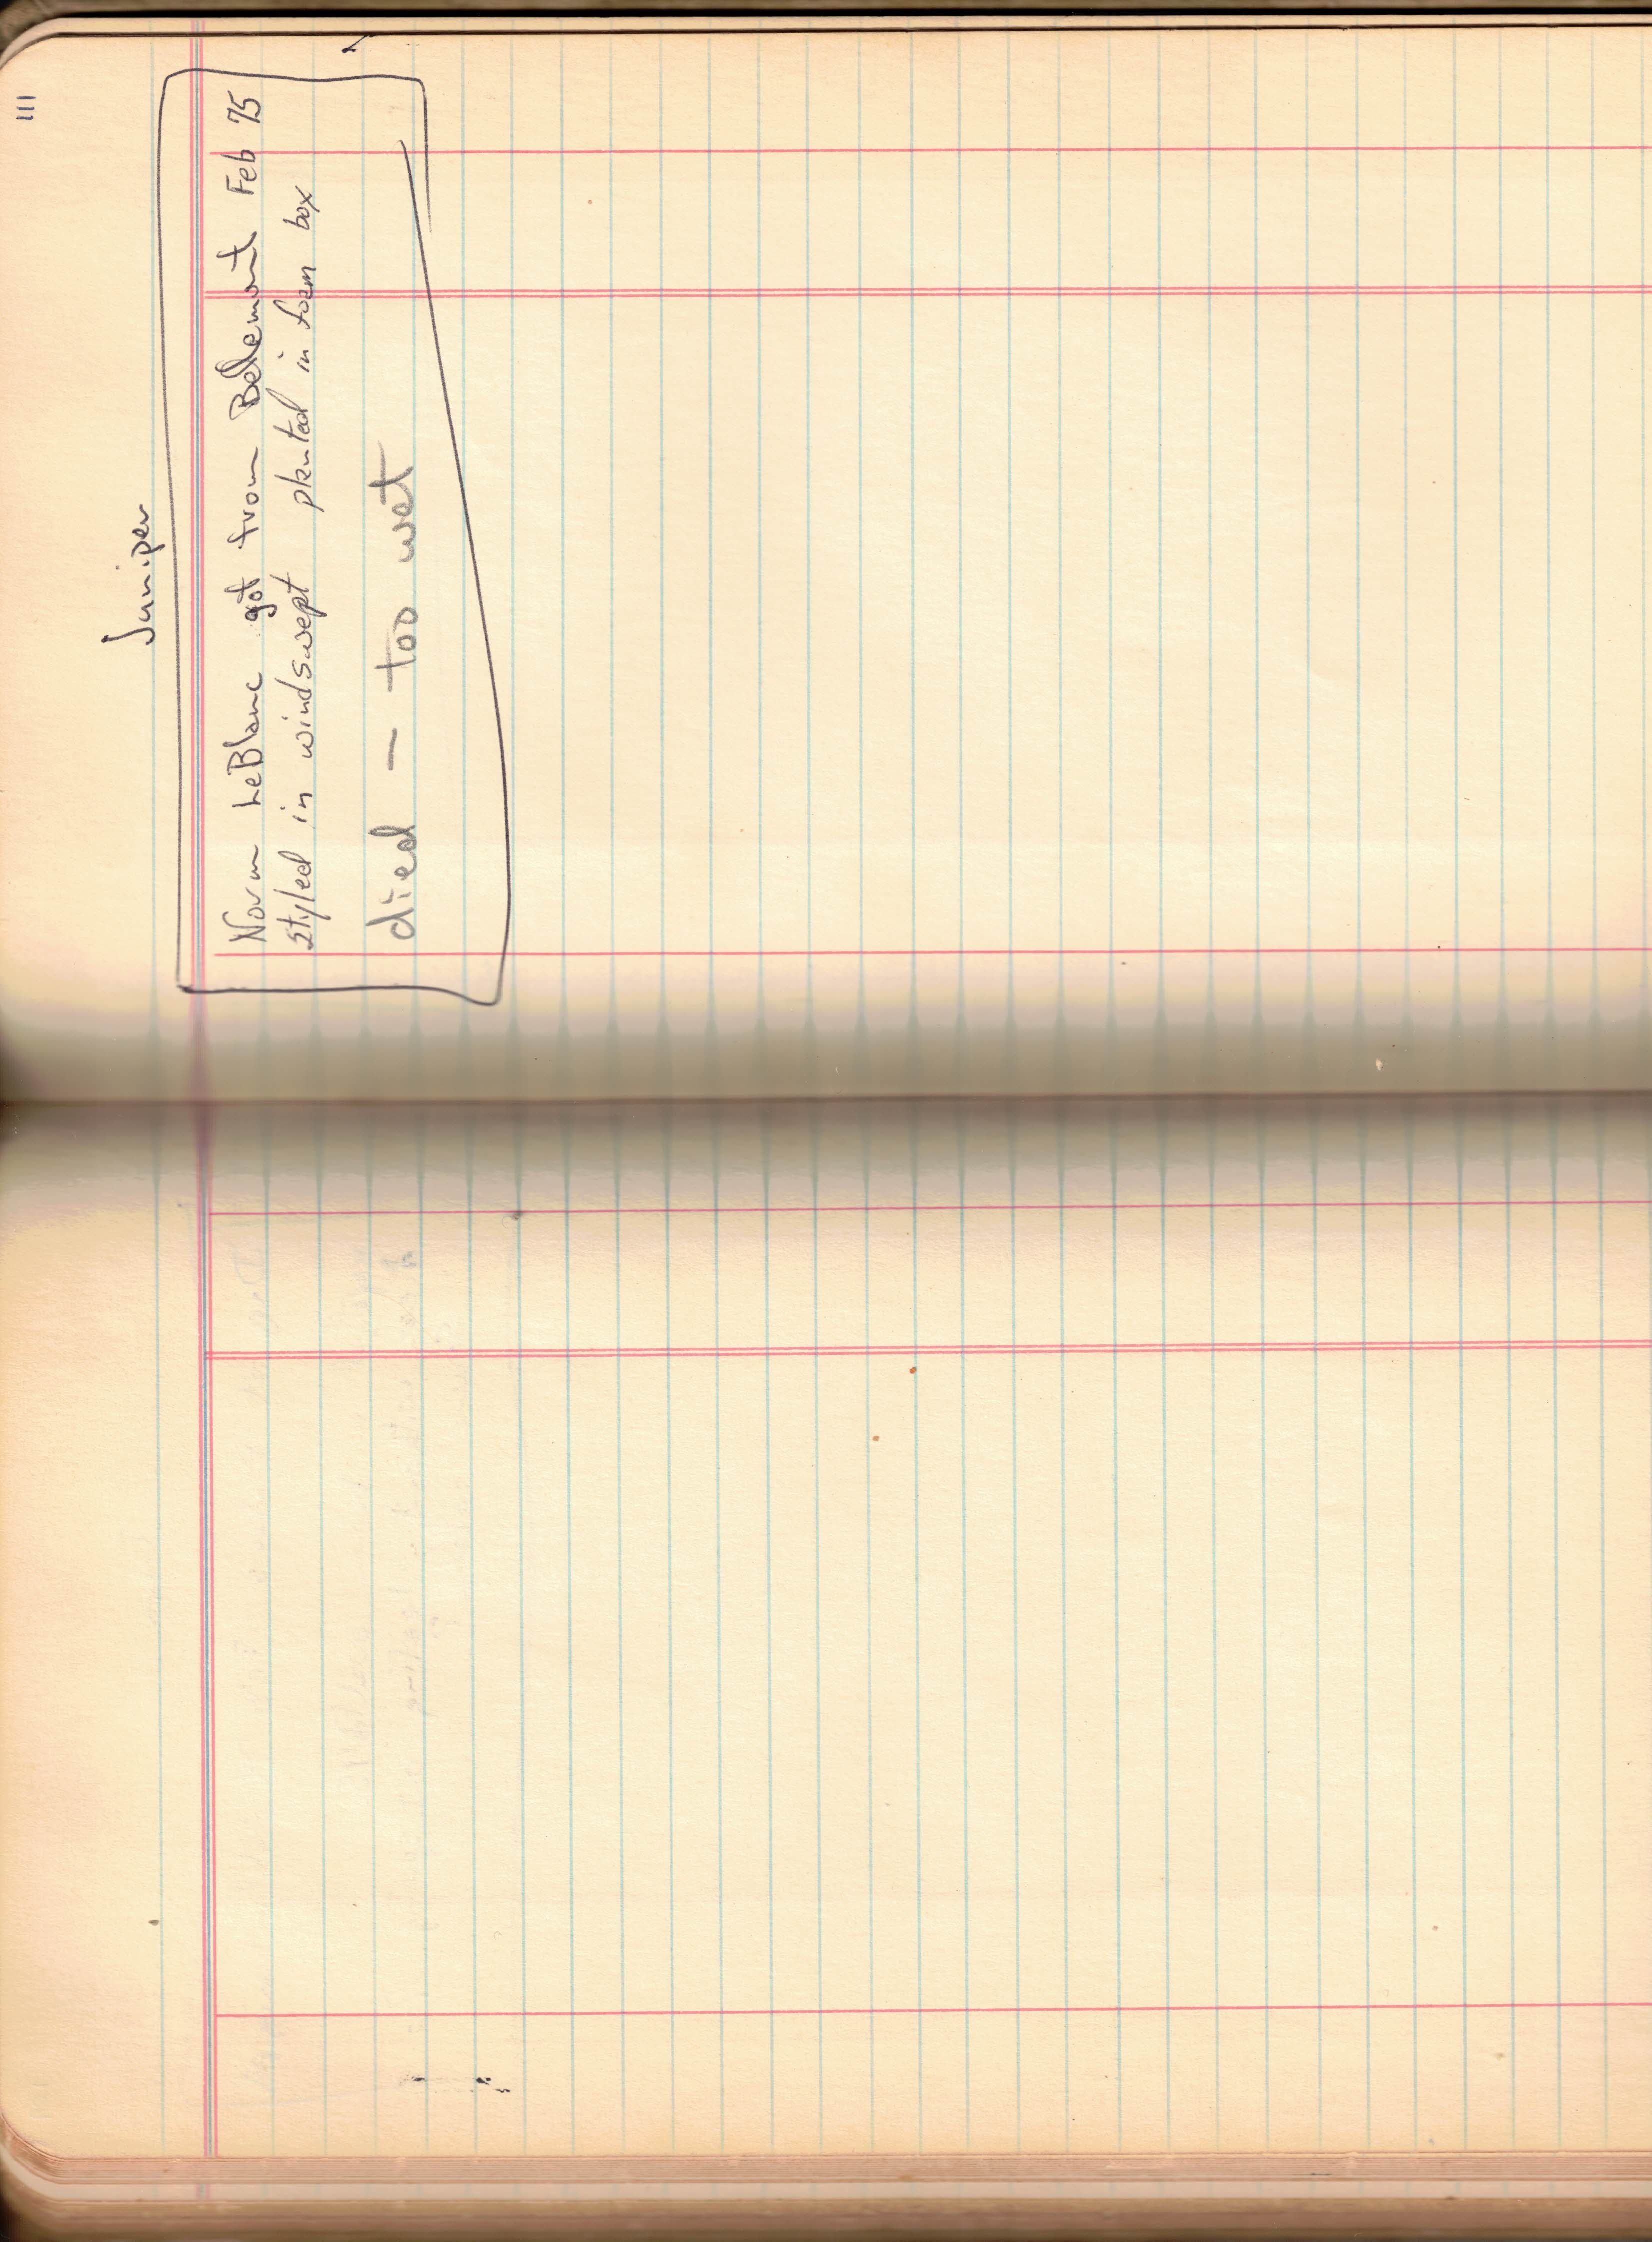 111
Juniper
Norm LeBlanc got from Bellemont Feb 75
styled in windswept planted in foam box
died - too wet